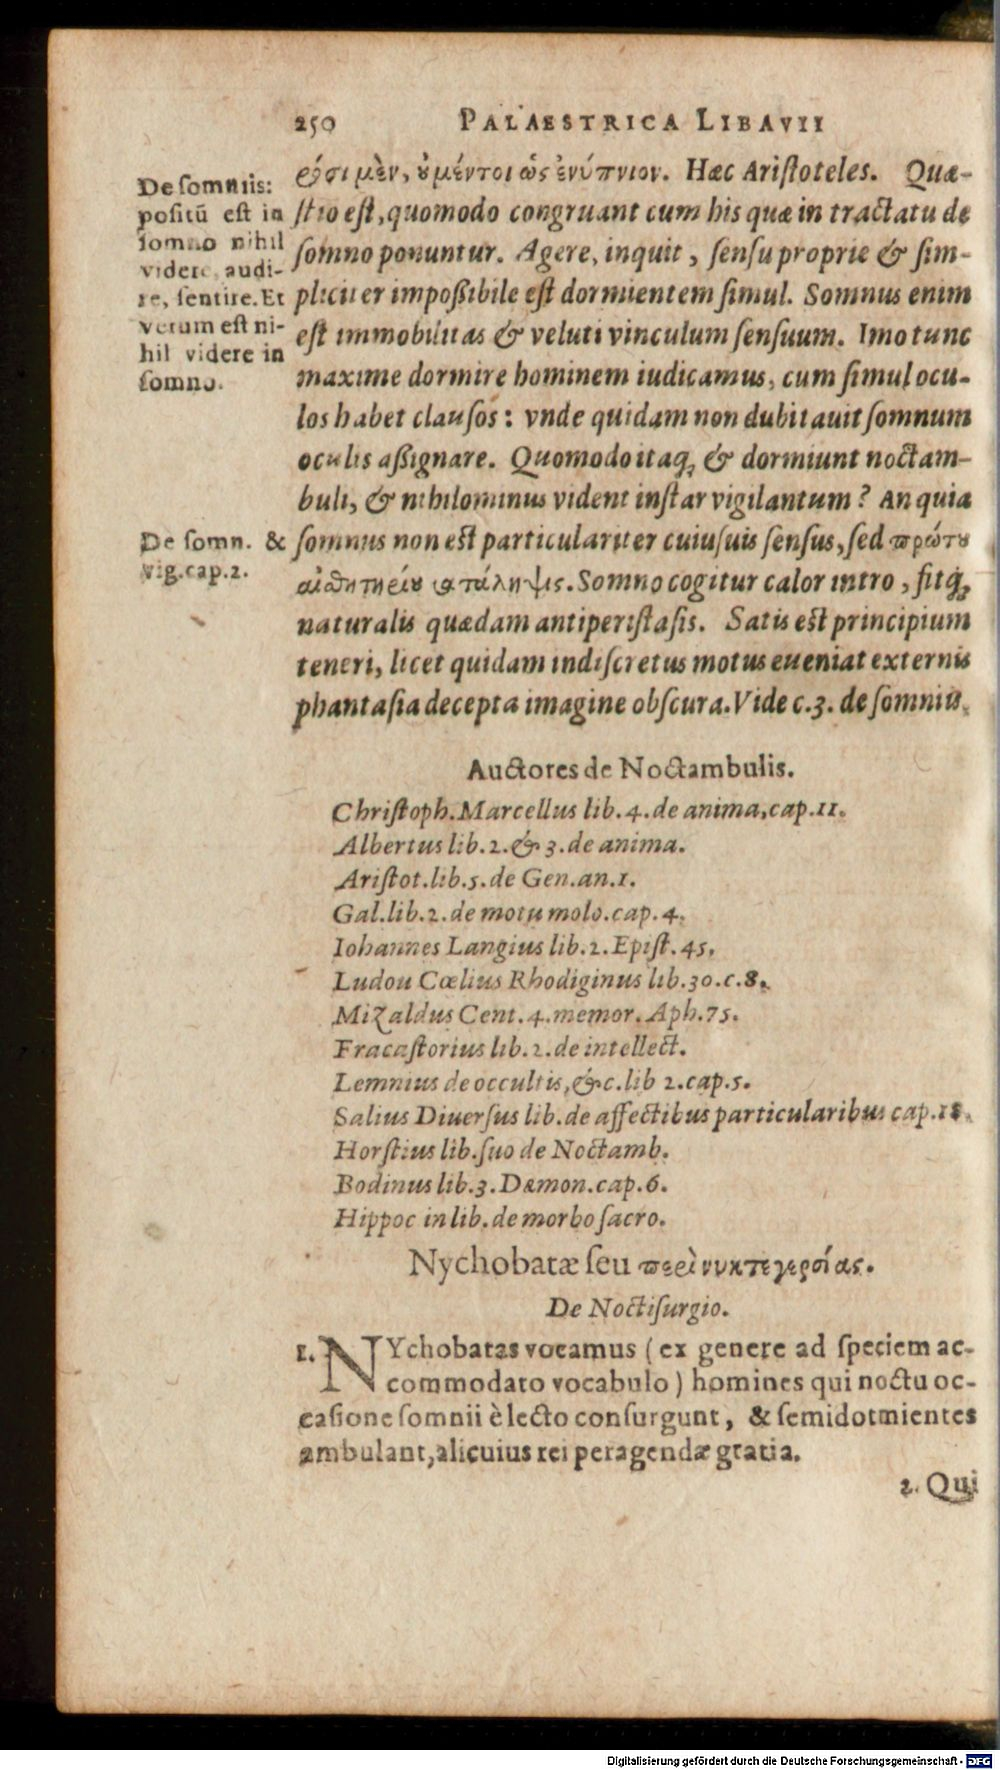 250 PALAESTRICA LIBAVII
De somniis:
positū est in
somno nihil
videre, audi-
re, sentire. Et
verum est ni-
hil videre in
somno.
μὲν, ὐ μέντοι ὡς ἐνύπνιον. Hæc Aristoteles. Quæ-
stio est, quomodo congruant cum his quæ in tractatu de
somno ponuntur. Agere, inquit, sensu proprie & sim-
pliciter impoßibile est dormientem simul. Somnus enim
est immobilitas & veluti vinculum sensuum. Imo tunc
maxime dormire hominem iudicamus, cum simul ocu-
los habet clausos: vnde quidam non dubitauit somnum
oculis aßignare. Quomodo itaq; & dormiunt noctam-
buli, & nihilominus vident instar vigilantum? An quia
De somn. &
vig. cap. 2.
somnus non est particulariter cuiusuis sensus, sed πρώτου
αἰσθητηρίου κατάληψις. Somno cogitur calor intro, fitq;
naturalis quædam antiperistasis. Satis est principium
teneri, licet quidam indiscretus motus eueniat externis
phantasia decepta imagine obscura. Vide c. 3. de somniis.
Auctores de Noctambulis.
Christoph. Marcellus lib. 4. de anima, cap. 11.
Albertus lib. 2. & 3. de anima.
Aristot. lib. 5. de Gen. an. 1.
Gal. lib. 2. de motu molo. cap. 4.
Iohannes Langius lib. 2. Epist. 45.
Ludou Cœlius Rhodiginus lib. 30. c. 8.
Mizaldus Cent. 4. memor. Aph. 75.
Fracastorius lib. 2. de intellect.
Lemnius de occultis, &c. lib 2. cap. 5.
Salius Diuersus lib. de affectibus particularibus cap. 18.
Horstius lib. suo de Noctamb.
Bodinus lib. 3. Dæmon. cap. 6.
Hippoc in lib. de morbo sacro.
Nychobatæ seu περὶ νυκτεγερσίας.
De Noctisurgio.
1. NYchobatas vocamus (ex genere ad speciem ac-
commodato vocabulo) homines qui noctu oc-
casione somnii è lecto consurgunt, & semidormientes
ambulant, alicuius rei peragendæ gratia.
2. Qui
Digitalisierung gefördert durch die Deutsche Forschungsgemeinschaft - DFG